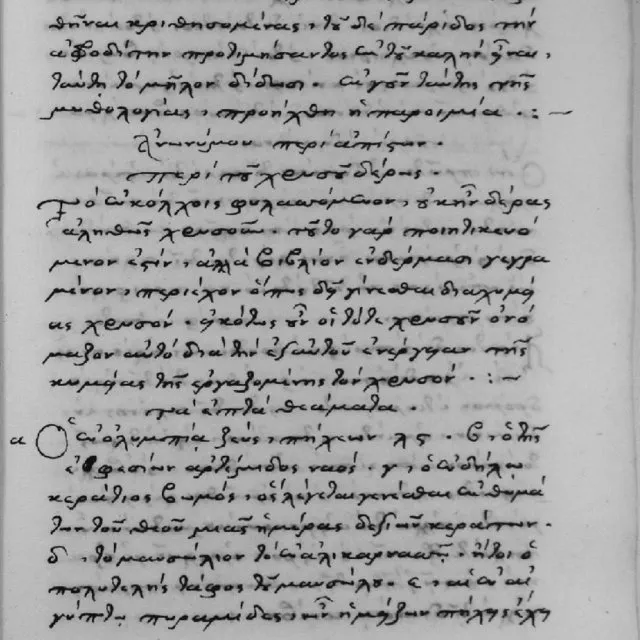 θῆναι κριθησομένας, τοῦ δὲ πάριδος τὴν
ἀφροδίτην προτιμήσαντος ὡς καλὴν,
ταύτῃ τὸ μῆλον δίδωσι. ταύτης τῆς
μυθολογίας, προήχθη ἡ παροιμία.
Ἀνωνύμου περὶ ἀπίστων.
Περὶ τοῦ χρυσοῦ δέρως.
Τὸ ἐν κόλχοις φυλαττόμενον, οὐκ ἦν δέρας
ἀληθῶς χρυσοῦν. τοῦτο γὰρ ποιητικευό
μενον ἐστὶν, ἀλλὰ βιβλίον ἐν δέρμασι γεγρα
μένον, περιέχον ὅπως δεῖ γίνεσθαι διὰ χυμεί
ας χρυσόν. εἰκότως οὖν οἱ τότε χρυσοῦν ὀνό
μαζον αὐτὸ διὰ τὴν ἐξ αὐτοῦ ἐνέργειαν τῆς
χυμείας τῆς ἐργαζομένης τὸν χρυσόν.
τὰ ἑπτὰ θεάματα.
α Ὁ ἐν ὀλυμπίᾳ ζεὺς, πήχεων λϛ. β, ὁ τῆς
ἐφεσίων ἀρτέμιδος ναός. γ, ὁ ἐν δήλῳ
κεράτινος βωμός, ὃς λέγεται γενέσθαι ἐκ θυμά
των τοῦ θεοῦ μιᾶς ἡμέρας δεξιῶν κεράτων.
δ, τὸ μαυσώλιον τὸ ἐν ἁλικαρνασσῷ, ἤτοι ὁ
πολυτελὴς τάφος τοῦ μαυσώλου. ε, αἱ ἐν αἰ
γύπτῳ πυραμίδες, ὧν ἡ μείζων πήχεις ἔχει